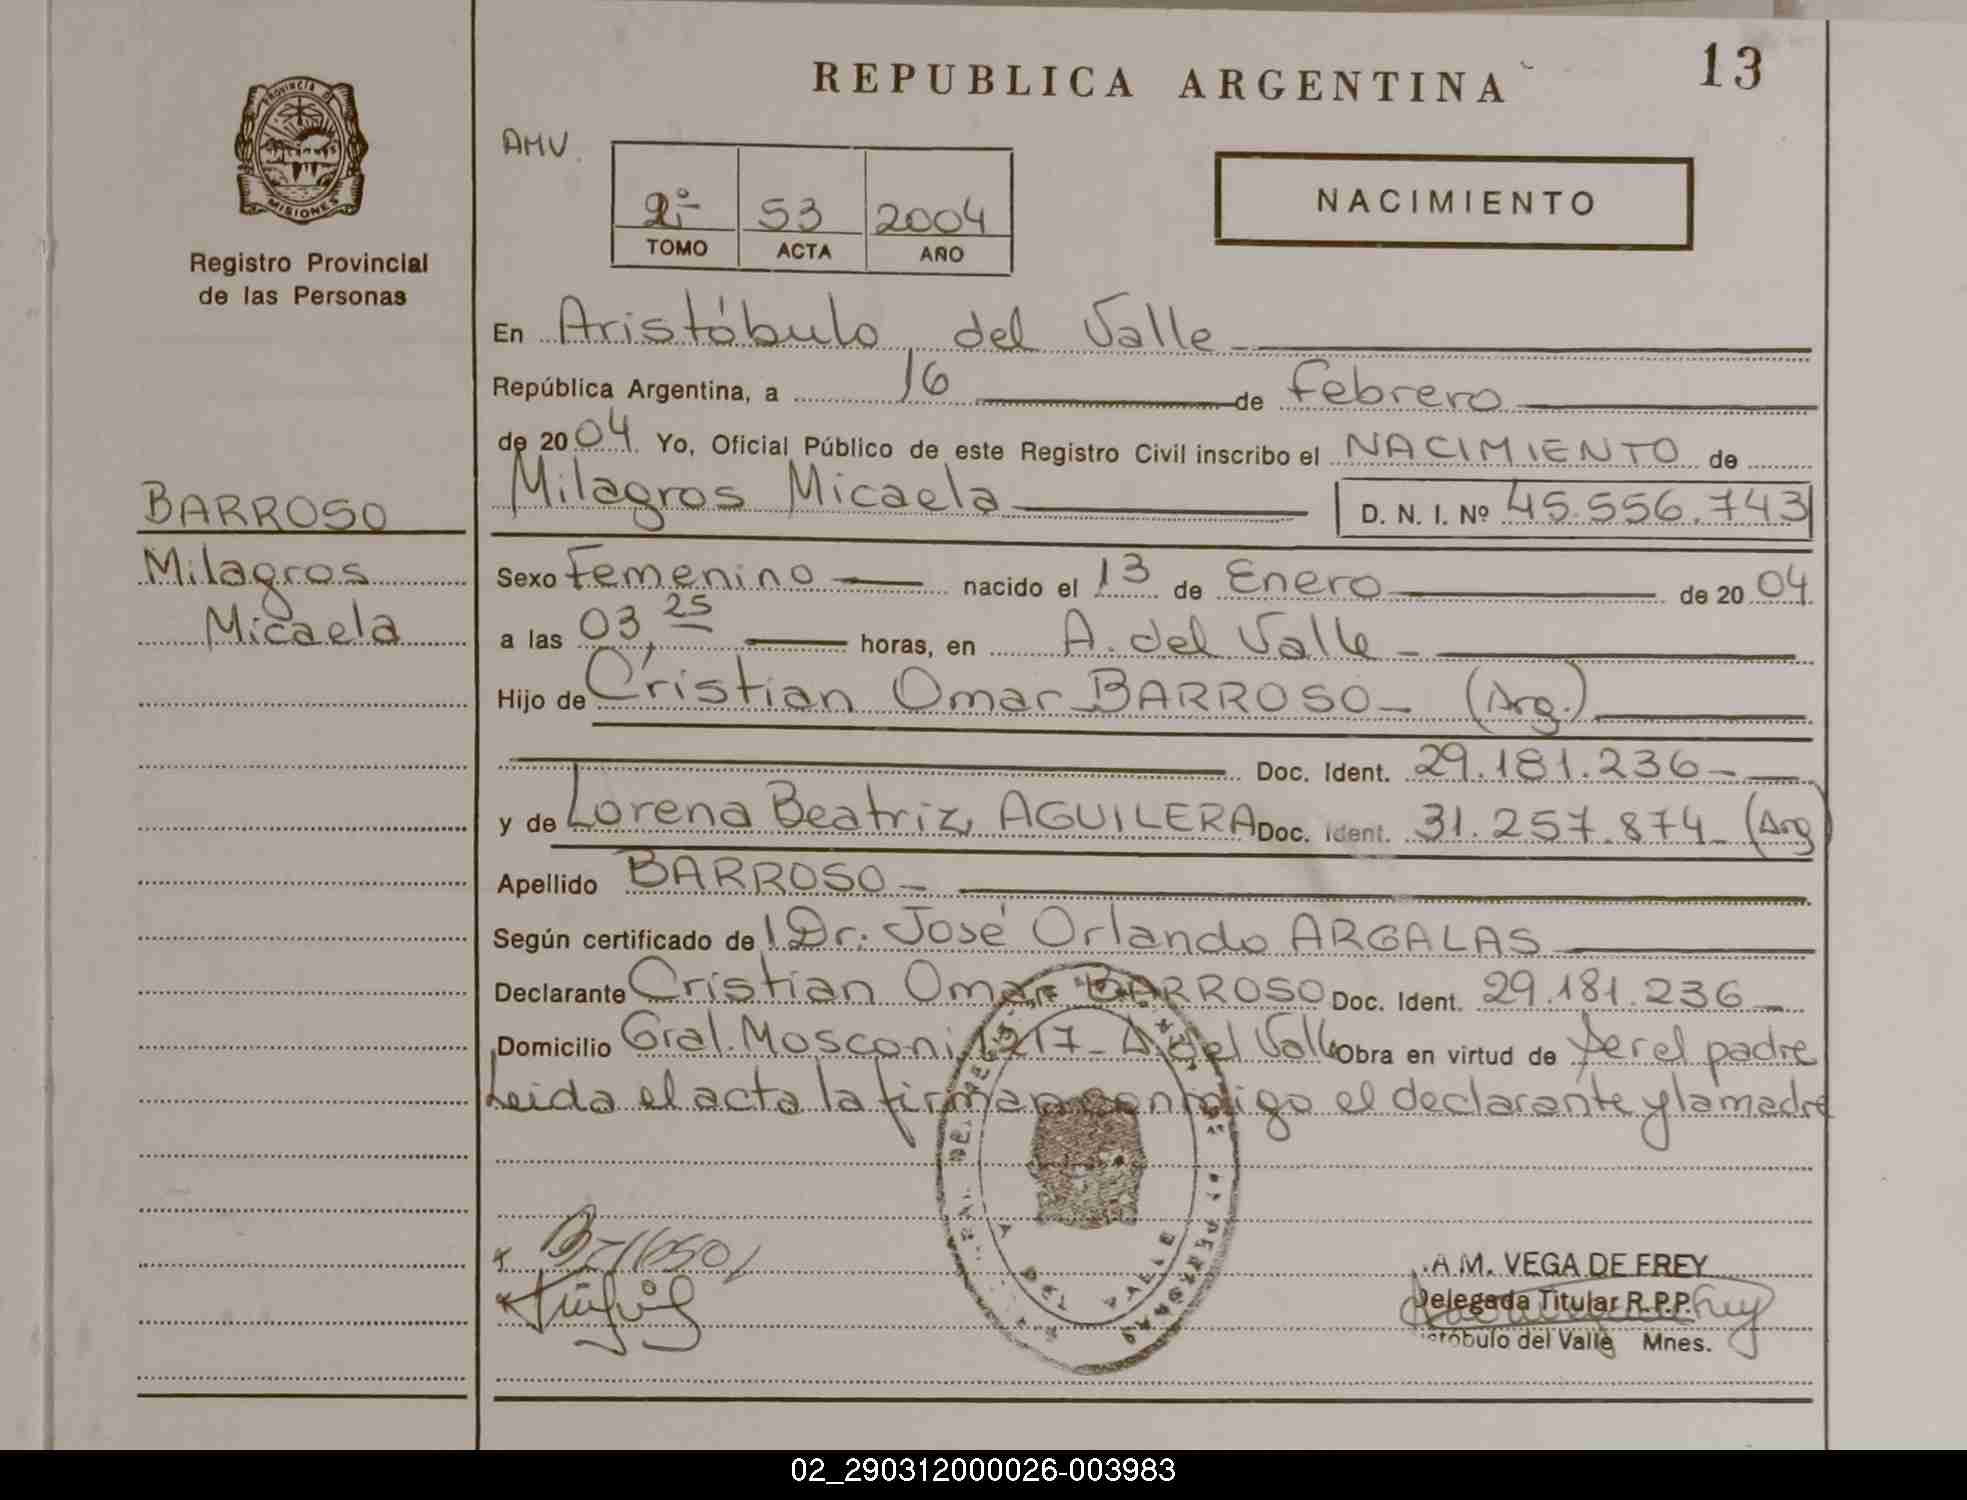 REPUBLICA ARGENTINA
13
PROVINCIA DE
MISIONES
Registro Provincial
de las Personas
AMV.
2º 53 2004
TOMO ACTA AÑO
NACIMIENTO
En Aristóbulo del Valle
República Argentina, a 16 de Febrero
de 2004. Yo, Oficial Público de este Registro Civil inscribo el NACIMIENTO de
BARROSO
Milagros Micaela D. N. I. Nº 45.556.743
Milagros
Micaela
Sexo Femenino nacido el 13 de Enero de 2004
a las 03,25 horas, en A. del Valle
Hijo de Cristian Omar BARROSO (Arg.)
Doc. Ident. 29.181.236
y de Lorena Beatriz AGUILERA Doc. Ident. 31.257.874 (Arg
Apellido BARROSO
Según certificado del Dr. José Orlando ARGALAS
Declarante Cristian Omar BARROSO Doc. Ident. 29.181.236
Domicilio Gral. Mosconi 1217 - A. del Valle Obra en virtud de ser el padre
Leida el acta la firman conmigo el declarante y la madre
A.M. VEGA DE FREY
Delegada Titular R.P.P.
del Valle Mnes.
02_290312000026-003983